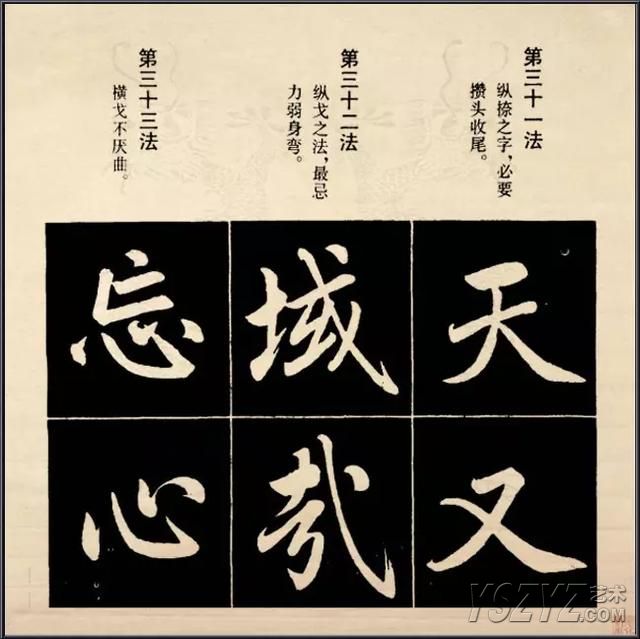 第三十一法
纵捺之字，必要
攒头收尾。
第三十二法
纵戈之法，最忌
力弱身弯。
第三十三法
横戈不厌曲。
天
又
域
哉
忘
心
YSZYZ艺术
.COM